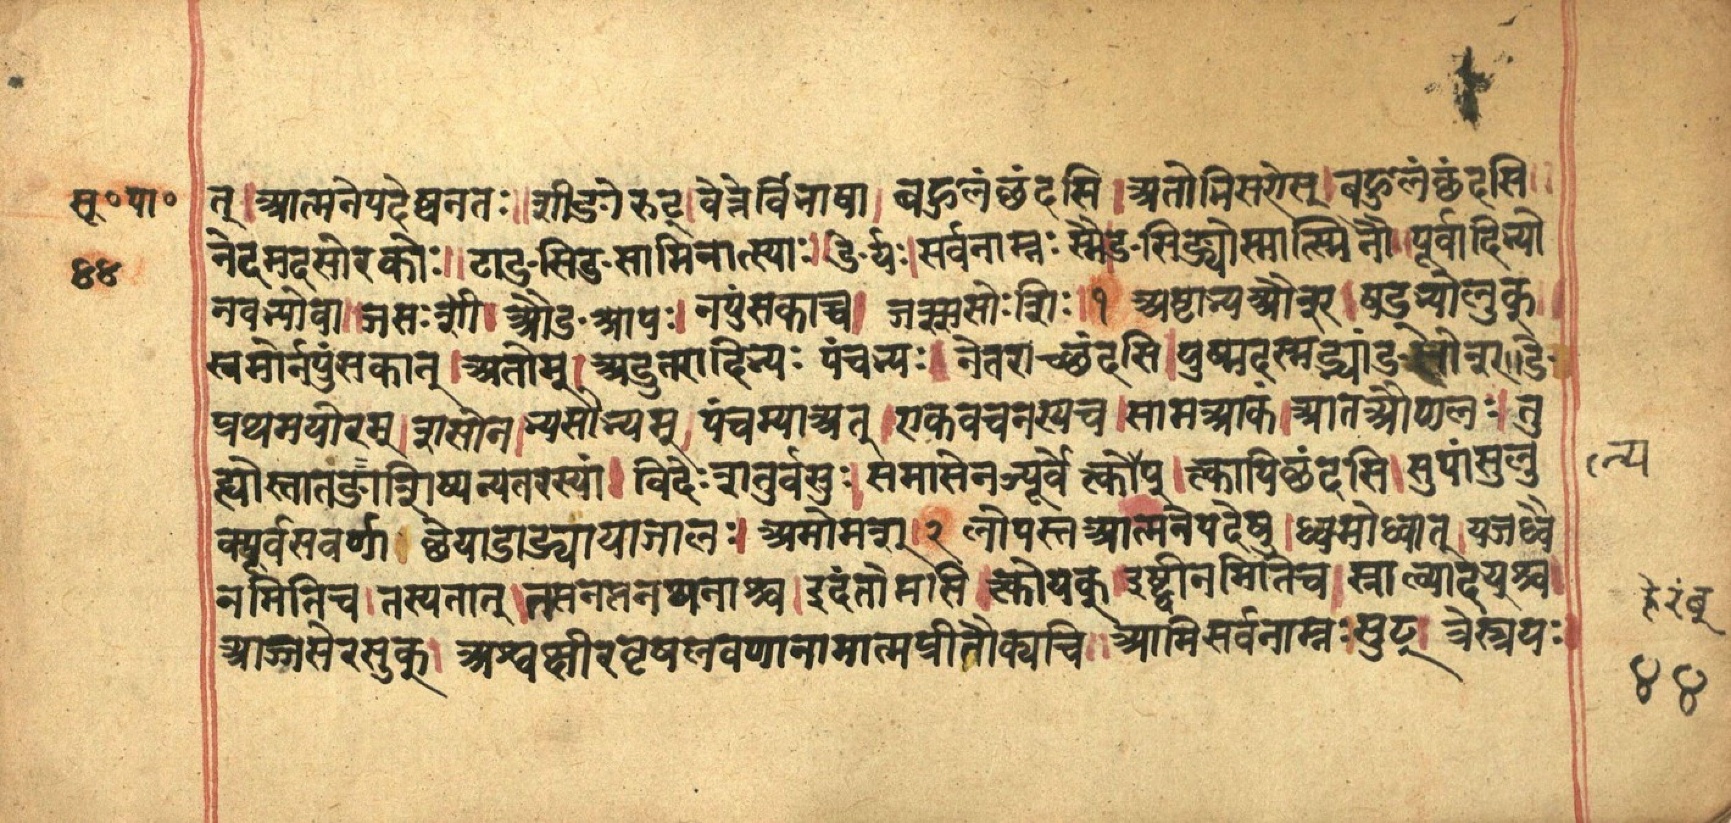 सू॰पा॰
४४
त् । आत्मनेपदेष्वनतः ॥ शीङो रुट् । वेत्तेर्विभाषा । बहुलं छंदसि । अतो भिस ऐस् । बहुलं छंदसि ॥
नेदमदसोरकोः ॥ टाङसिङसामिनात्स्याः । ङेर्यः । सर्वनाम्नः स्मै । ङसिङ्योः स्मात्स्मिनौ । पूर्वादिभ्यो
नवभ्यो वा । जसः शी । औङ आपः । नपुंसकाच्च । जश्शसोः शिः । १ अष्टाभ्य औश् । षड्भ्यो लुक् ।
स्वमोर्नपुंसकात् । अतोम् । अड्डतरादिभ्यः पंचभ्यः । नेतराच्छंदसि । युष्मदस्मद्भ्यां ङसोश् ॥ ङे
प्रथमयोरम् । शसो न । भ्यसोभ्यम् । पंचम्या अत् । एकवचनस्य च । साम आकं । आत औ णलः । तु
ह्योस्तातङाशिष्यन्यतरस्यां । विदेः शतुर्वसुः । समासेनञ्पूर्वे त्को ल्यप् । त्कापि छंदसि । सुपां सुलु
न्य
क्पूर्वसवर्णाच्छेयाडाड्यायाजालः । अमो मश् । २ लोपस्त आत्मनेपदेषु । ध्वमो ध्वात् । यजध्वै
नमिति च । तस्य तात् । तप्तनप्तनथनाश्च । इदंतो मसि । त्को यक् । इष्ट्वीनमिति च । स्नात्व्यादयश्च ।
आज्जसेरसुक् । अश्वक्षीरवृषलवणानामात्मप्रीतौ क्यचि ॥ आमि सर्वनाम्नः सुट् । त्रेस्त्रयः ।
हेरंब्
४४